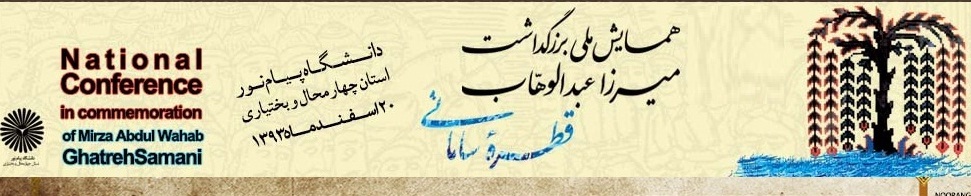 همایش ملی بزرگداشت
میرزا عبدالوهّاب
قطرهٔ سامانی
دانشگاه پیام‌نور
استان چهارمحال و بختیاری
۲۰ اسفندماه ۱۳۹۳
National
Conference
in commemoration
of Mirza Abdul Wahab
GhatrehSamani
NOORANG